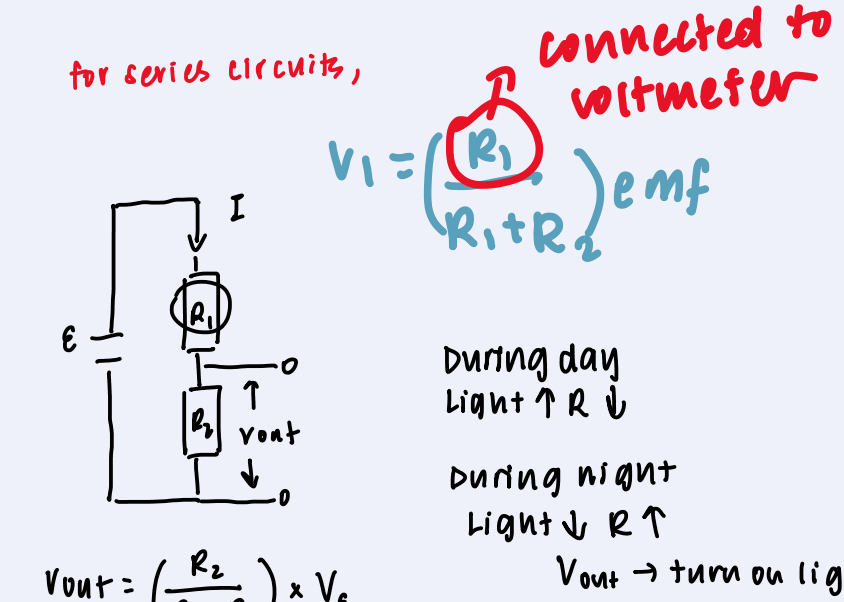 for series circuits,
connected to
voltmeter
V1 = (R1 / R1 + R2) emf
I
ε
R1
R2
Vout
During day
Light ↑ R ↓
During night
Light ↓ R ↑
Vout → turn on lig
Vout = (R2 /
) x V